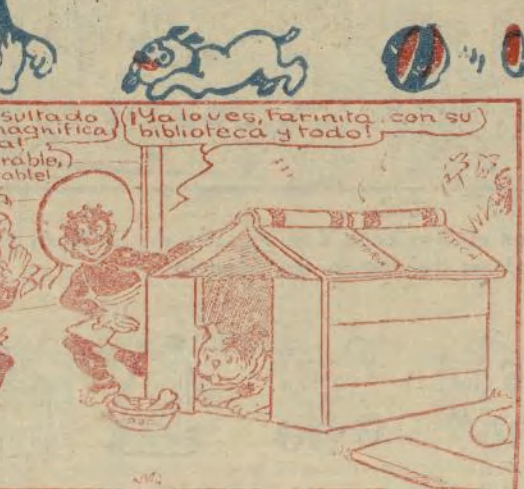 sultado
magnifica
a!
rable,
able!
¡Ya lo ves, Farinita, con su
biblioteca y todo!
HISTORIA